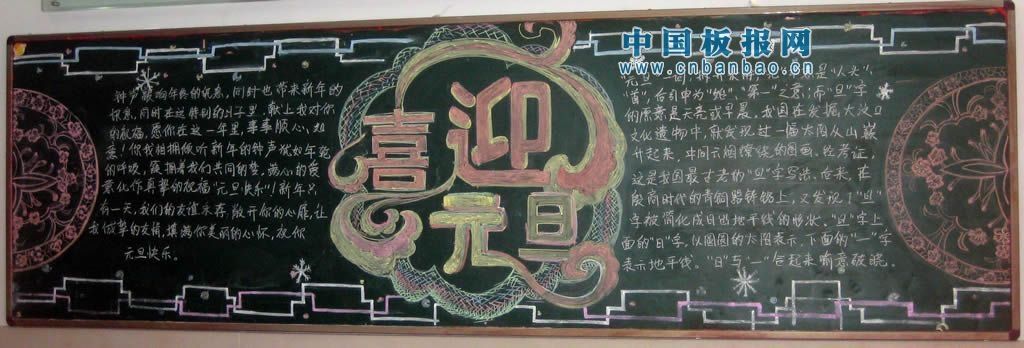 钟声敲响年终的讯息，同时也带来新年的
讯息，同时在这特别的日子里，献上我对你
的祝福，愿你在这一年里，事事顺心，如
意！你我相拥倾听新年的钟声犹如年轮
的呼吸，簇拥着我们共同的梦，满心的爱
意化作真挚的祝福"元旦快乐"！新年只
有一天，我们的友谊永存，敞开你的心扉，让
我做挚的友情，填满你美丽的心怀，祝你
元旦快乐。
喜迎
元旦
中国板报网
www.cnbanbao.cn
是"人头"，
"首"，后引申为"始"、"第一"之意；而"旦"字
的原意是天亮或早晨。我国在发掘大汶口
文化遗物中，就发现过一幅太阳从山巅
升起来，中间云烟缭绕的图画。经考证，
这是我国最古老的"旦"字写法。后来，在
殷商时代的青铜器铸铭上，又发现了"旦"
字被简化成日出地平线的形状。"旦"字上
面的"日"字，以圆圆的太阳表示，下面的"一"字
表示地平线。"日"与"一"合起来喻意破晓。